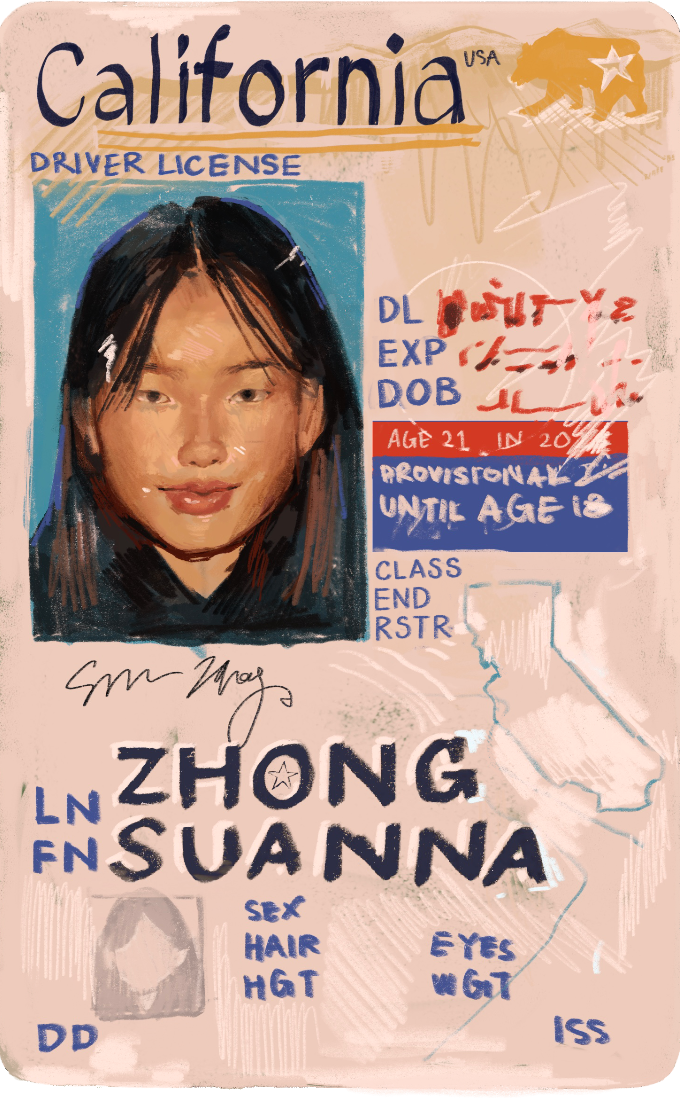 California USA
DRIVER LICENSE
DL
EXP
DOB
AGE 21 IN 20
PROVISIONAL
UNTIL AGE 18
CLASS
END
RSTR
LN ZHONG
FN SUANNA
SEX
HAIR EYES
HGT WGT
DD ISS